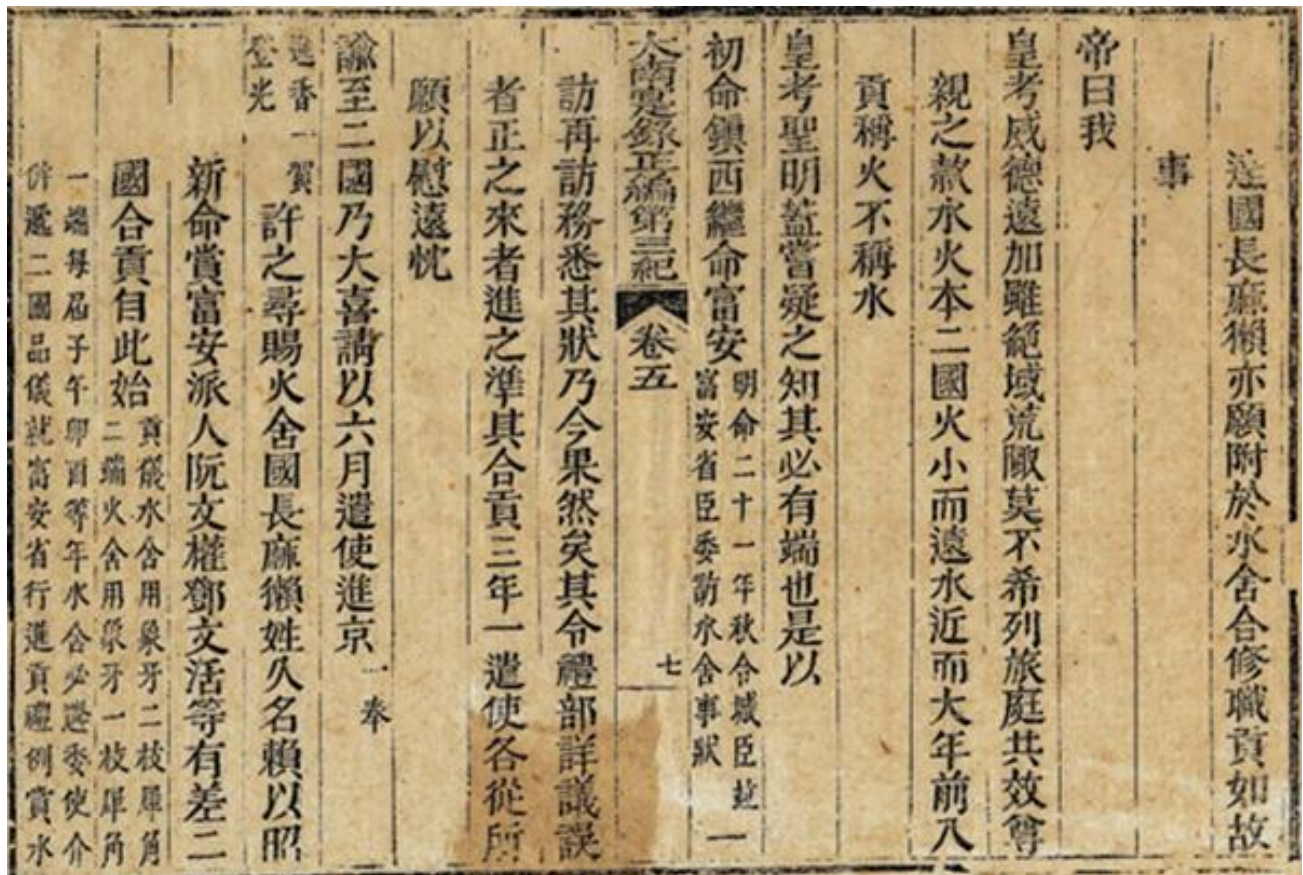 滛國長麻獺亦願附於水舍合修職貢如故
事
帝曰我
皇考威德遠加雖絕域荒陬莫不希列旅庭共效尊
親之款水火本二國火小而遠水近而大年前入
貢稱火不稱水
皇考聖明蓋嘗疑之知其必有端也是以
初命鎮西繼命富安
明命二十一年秋令城臣並
富安省臣委訪水舍事狀
一
大南寔錄正編第三紀
卷五
七
訪再訪務悉其狀乃今果然矣其令禮部詳議誤
者正之來者進之準其合貢三年一遣使各從所
願以慰遠忱
諭至二國乃大喜請以六月遣使進京
一奉
進香一賀
登光
許之尋賜火舍國長麻獺姓久名賴以昭
新命賞富安派人阮文權鄧文活等有差二
國合貢自此始
貢儀水舍用象牙二枝犀角
二端火舍用象牙一枝犀角
一端每屆子午卯酉等年水舍必遞委使介
併遞二國品儀就富安省行進貢禮例賞水